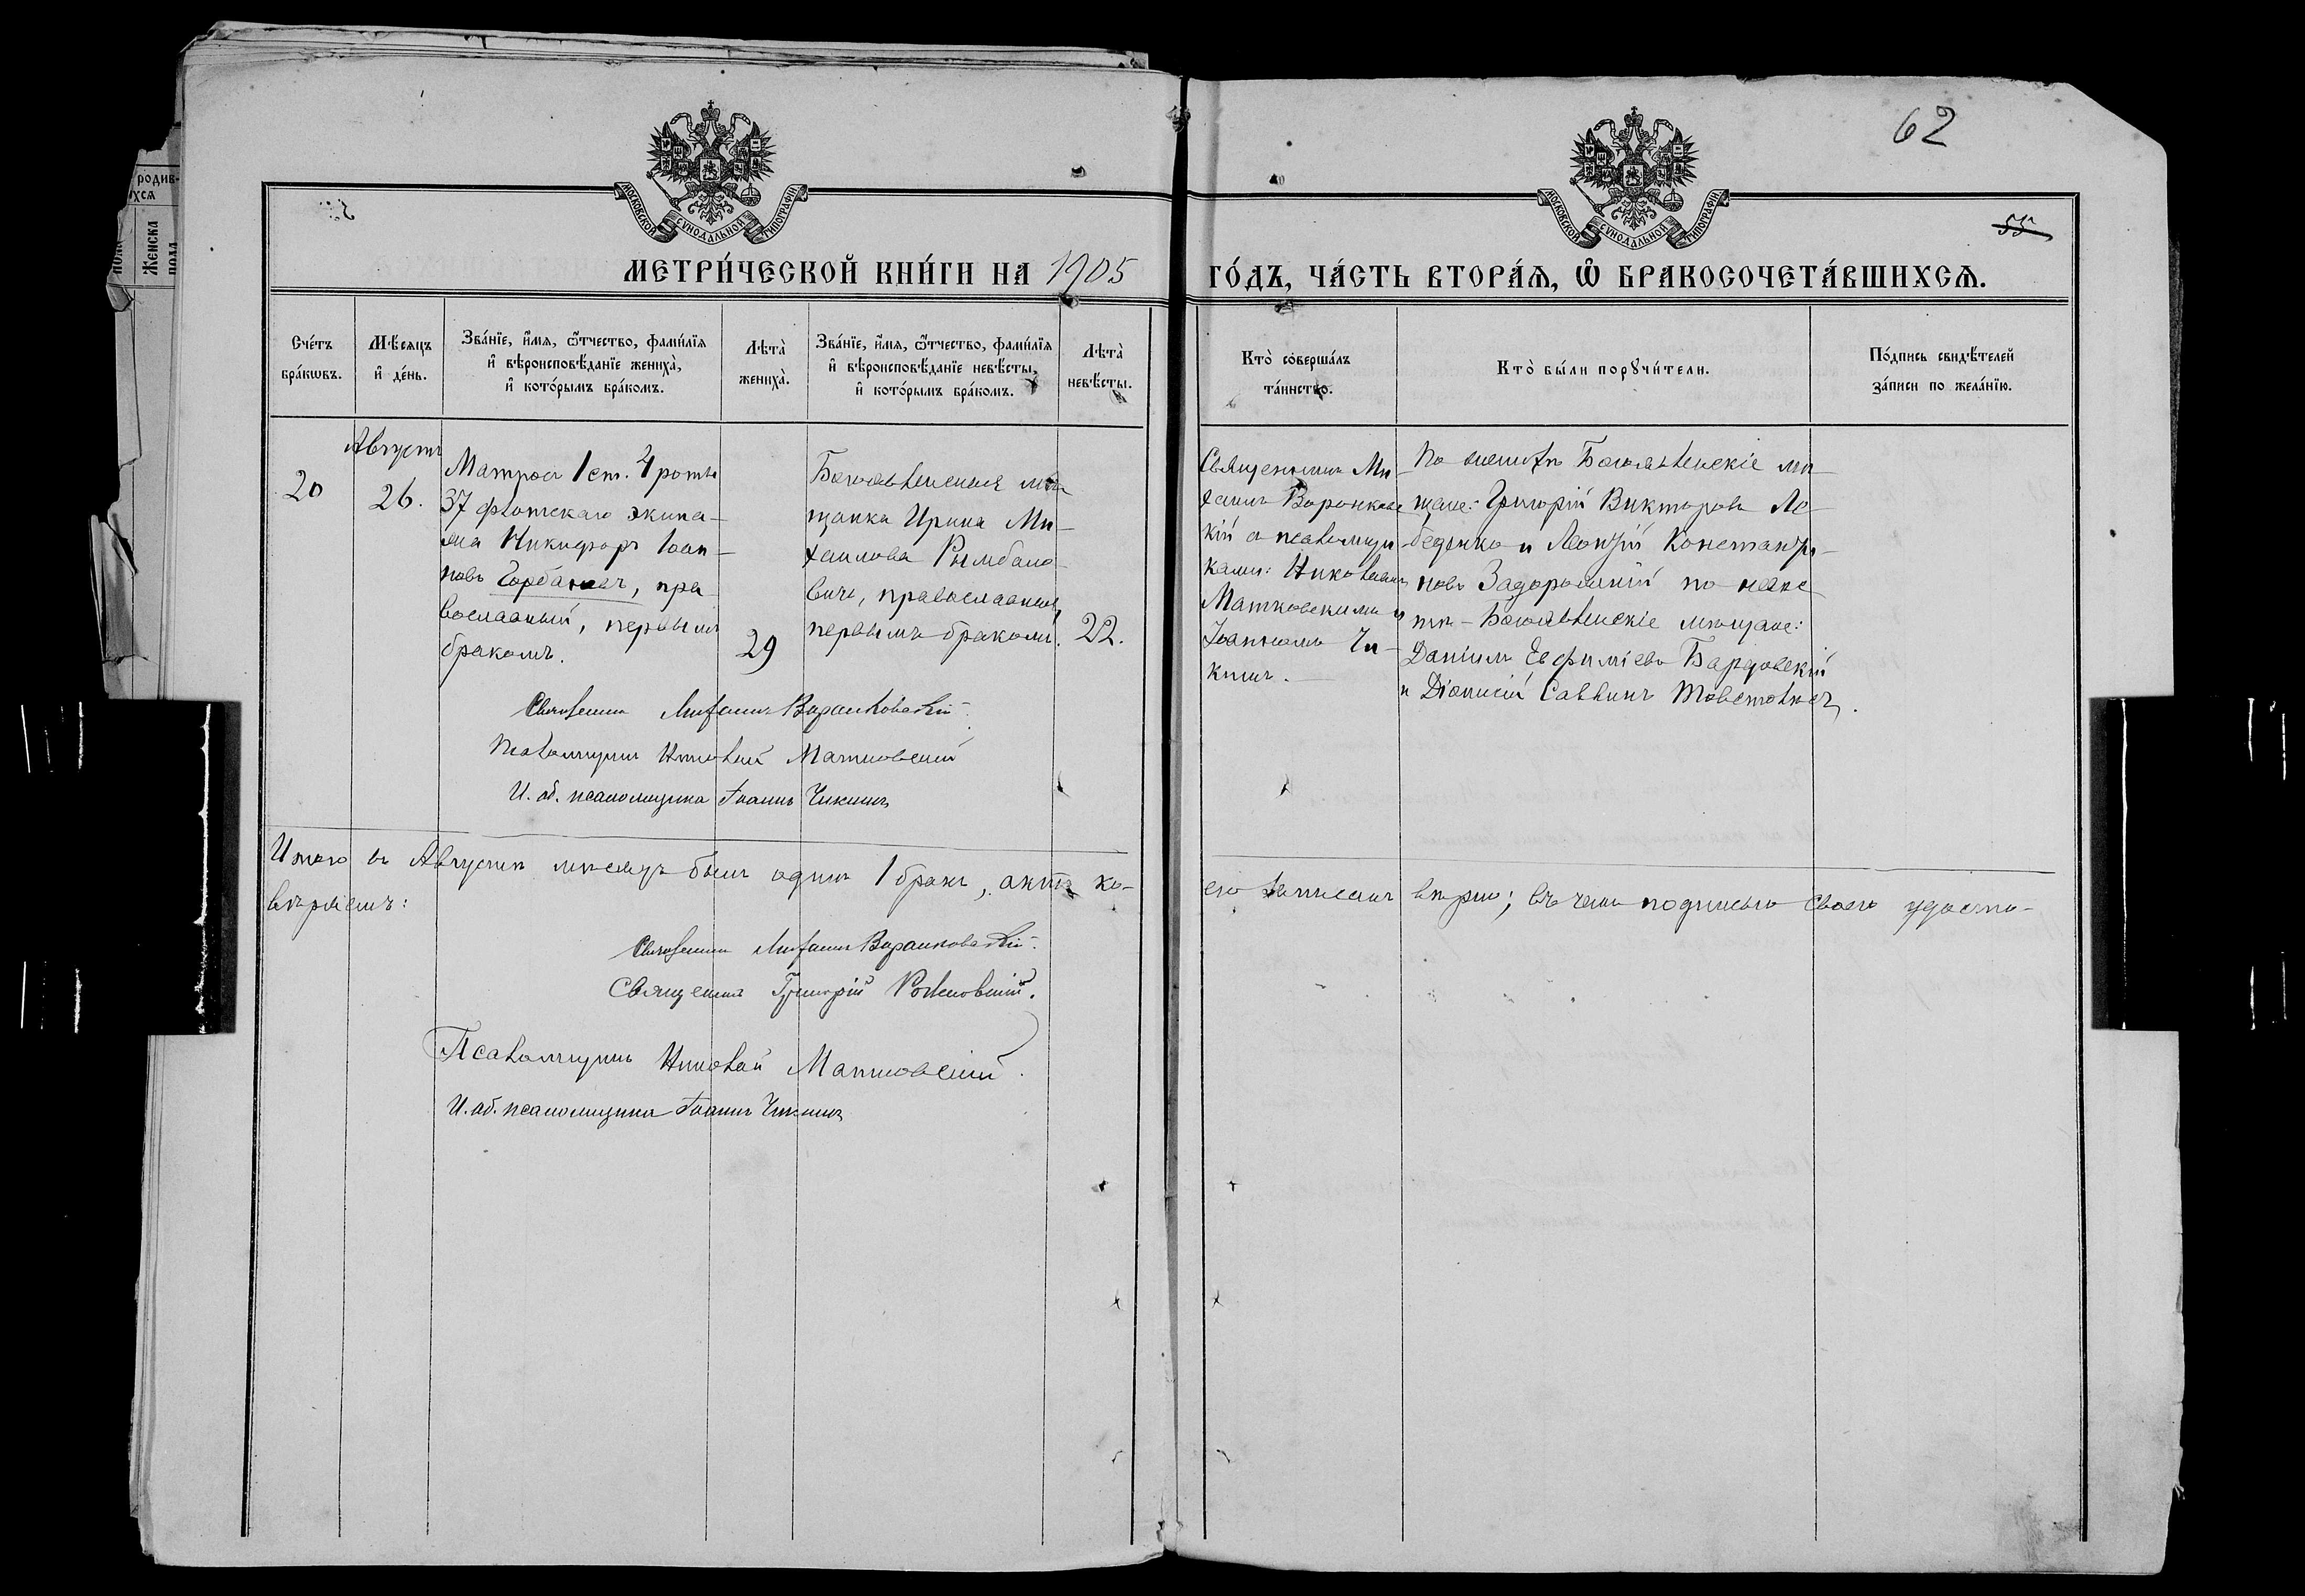 родив-
ихсѧ
Женска
пола
62
55
МОСКОВСКОЙ СѴНОДАЛЬНОЙ ТИПОГРАФІИ
МОСКОВСКОЙ СѴНОДАЛЬНОЙ ТИПОГРАФІИ
МЕТРИ́ЧЕСКОЙ КНИ́ГИ НА 1905
ГО́ДЪ, ЧА́СТЬ ВТОРА́Ѧ, Ѡ҆ БРАКОСОЧЕТА́ВШИХСѦ.
Сче́тъ бра́кѡвъ.
Мѣ́сяцъ и҆ де́нь.
Зва́нїе, и҆́мѧ, ѻ҆́тчество, фами́лїѧ и҆ вѣроисповѣ́данїе жениха̀, и҆ кото́рымъ бра́комъ.
Лѣта̀ жениха̀.
Зва́нїе, и҆́мѧ, ѻ҆́тчество, фами́лїѧ и҆ вѣроисповѣ́данїе невѣ́сты, и҆ кото́рымъ бра́комъ.
Лѣта̀ невѣ́сты.
Кто̀ соверша́лъ та́инство.
Кто̀ бы́ли порꙋчи́тели.
По́дпись свидѣ́телей за́писи по жела́нїю.
20
Августъ
26.
Матросъ 1 ст. 4 роты
37 флотскаго экипа-
жа Никифоръ Іоан-
новъ Горбанев, пра-
вославный, первымъ
бракомъ.
29
Богоявленская мѣ-
щанка Ирина Ми-
хаилова Рымбало-
вичъ, православная,
первымъ бракомъ.
22.
Священникъ Ми-
хаилъ Воронковс-
кій с псаломщи-
ками: Николаемъ
Матковскимъ и
Іоанномъ Чи-
кинъ.
По женихѣ Богоявленскіе мѣ-
щане: Григорій Викторовъ Ле-
беденко и Леонтій Константи-
новъ Задорожній по невѣс-
тѣ - Богоявленскіе мѣщане:
Даніилъ Евфиміевъ Бардовскій
и Діонисій Саввинъ Товстолнесъ.
Священникъ Михаилъ Воронковскій
Псаломщикъ Николай Матковскій
И. об. псаломщика Іоаннъ Чикинъ
Итого въ Августѣ мѣсяцѣ былъ одинъ 1 бракъ, актъ ко-
его записанъ вѣрно; въ чемъ подписью своею удосто-
вѣряемъ:
Священникъ Михаилъ Воронковскій.
Священникъ Григорій
Псаломщикъ Николай Матковскій.
И. об. псаломщика Іоаннъ Чикинъ